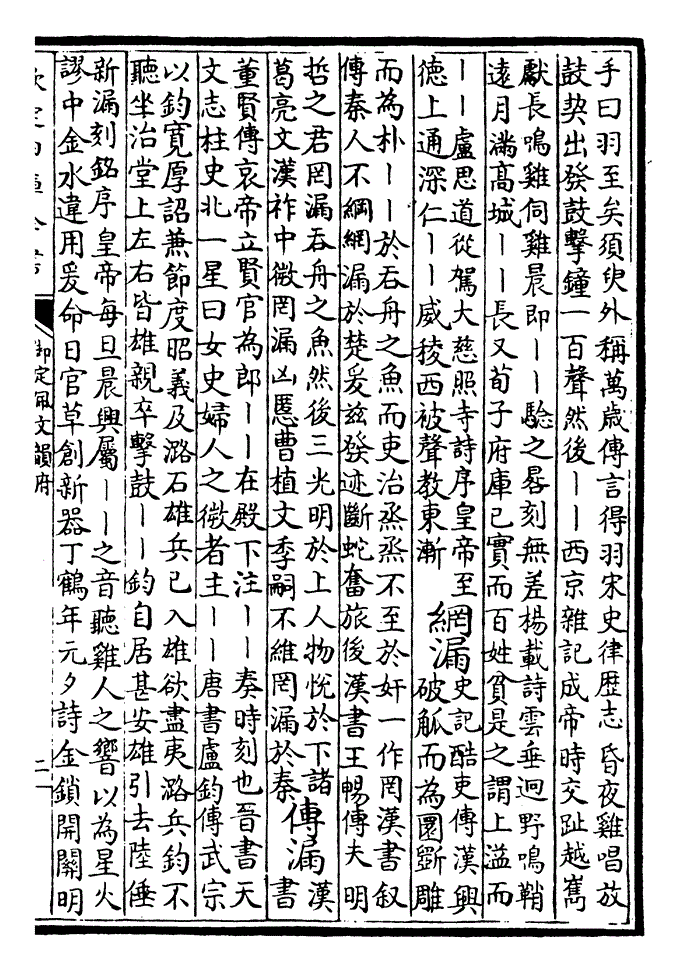 手曰羽至矣須臾外稱萬歲傳言得羽宋史律歷志昏夜雞唱放
鼓契出發鼓擊鐘一百聲然後丨丨西京雜記成帝時交趾越嶲
獻長鳴雞伺雞晨即丨丨驗之晷刻無差楊載詩雲垂迥野鳴鞘
遠月滿髙城丨丨長又荀子府庫已實而百姓貧是之謂上溢而
丨丨盧思道從駕大慈照寺詩序皇帝至
德上通深仁丨丨威稜西被聲教東漸
網漏
史記酷吏傳漢興
破觚而為圜斵雕
而為朴丨丨於吞舟之魚而吏治烝烝不至於奸一作罔漢書叙
傳秦人不綱網漏於楚爰兹發迹斷蛇奮旅後漢書王暢傳夫明
哲之君罔漏吞舟之魚然後三光明於上人物恱於下諸
葛亮文漢祚中微罔漏凶慝曹植文季嗣不維罔漏於秦
傳漏
漢
書
董賢傳哀帝立賢官為郎丨丨在殿下注丨丨奏時刻也晉書天
文志柱史北一星曰女史婦人之微者主丨丨唐書盧鈞傳武宗
以鈞寛厚詔兼節度昭義及潞石雄兵已入雄欲盡夷潞兵鈞不
聽坐治堂上左右皆雄親卒擊鼓丨丨鈞自居甚安雄引去陸倕
新漏刻銘序皇帝每旦晨興屬丨丨之音聽雞人之響以為星火
謬中金水違用爰命日官草創新器丁鶴年元夕詩金鎖開關明
欽定四庫全書
御定佩文韻府
二